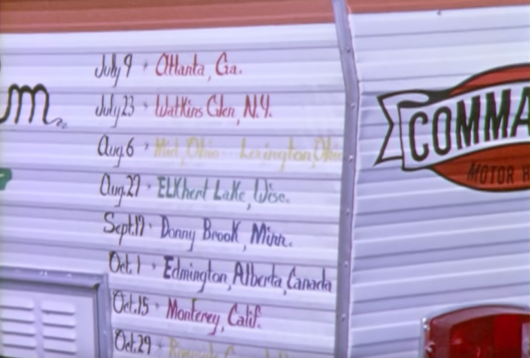 m
July 9 - Atlanta, Ga.
July 23 - Watkins Glen, N.Y.
Aug. 6 - Mid, Ohio - Lexington, Ohio
Aug. 27 - Elkhert Lake, Wisc.
Sept. 17 - Donny Brook, Minn.
Oct. 1 - Edmington, Alberta, Canada
Oct. 15 - Monterey, Calif.
Oct. 29 -
COMMA
MOTOR